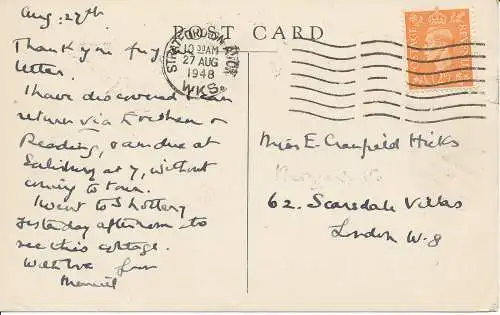 POST CARD
Aug: 27th
Thank you for yr
letter.
I have discovered I can
return via Evesham &
Reading, & am due at
Salisbury at 7, without
coming to town.
I went to Shottery
yesterday afternoon to
see this cottage.
With love from
STRATFORD-ON-AVON
10 AM
27 AUG
1948
WKS.
Miss E. Cranfield Hicks
62. Scarsdale Villas
London W-8